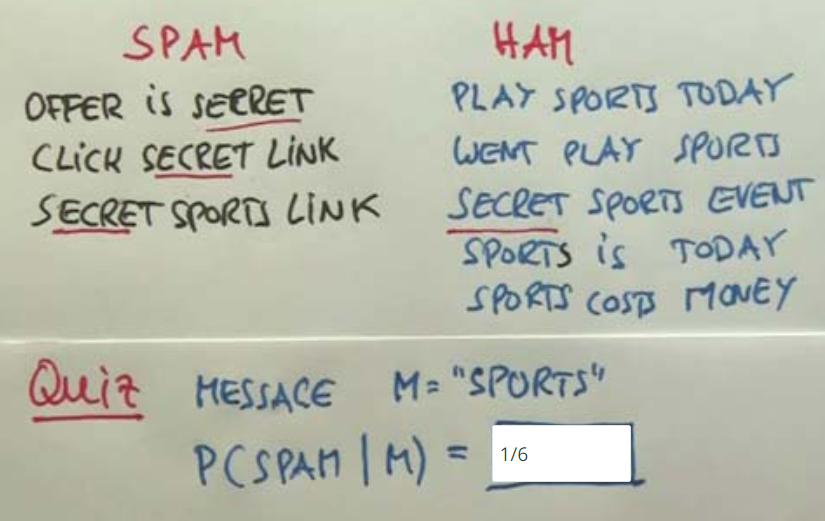 SPAM
OFFER iS SECRET
CLICK SECRET LINK
SECRET SPORTS LINK
HAM
PLAY SPORTS TODAY
WENT PLAY SPORTS
SECRET SPORTS EVENT
SPORTS iS TODAY
SPORTS COSTS MONEY
Quiz MESSAGE M= "SPORTS"
P(SPAM | M) = 1/6